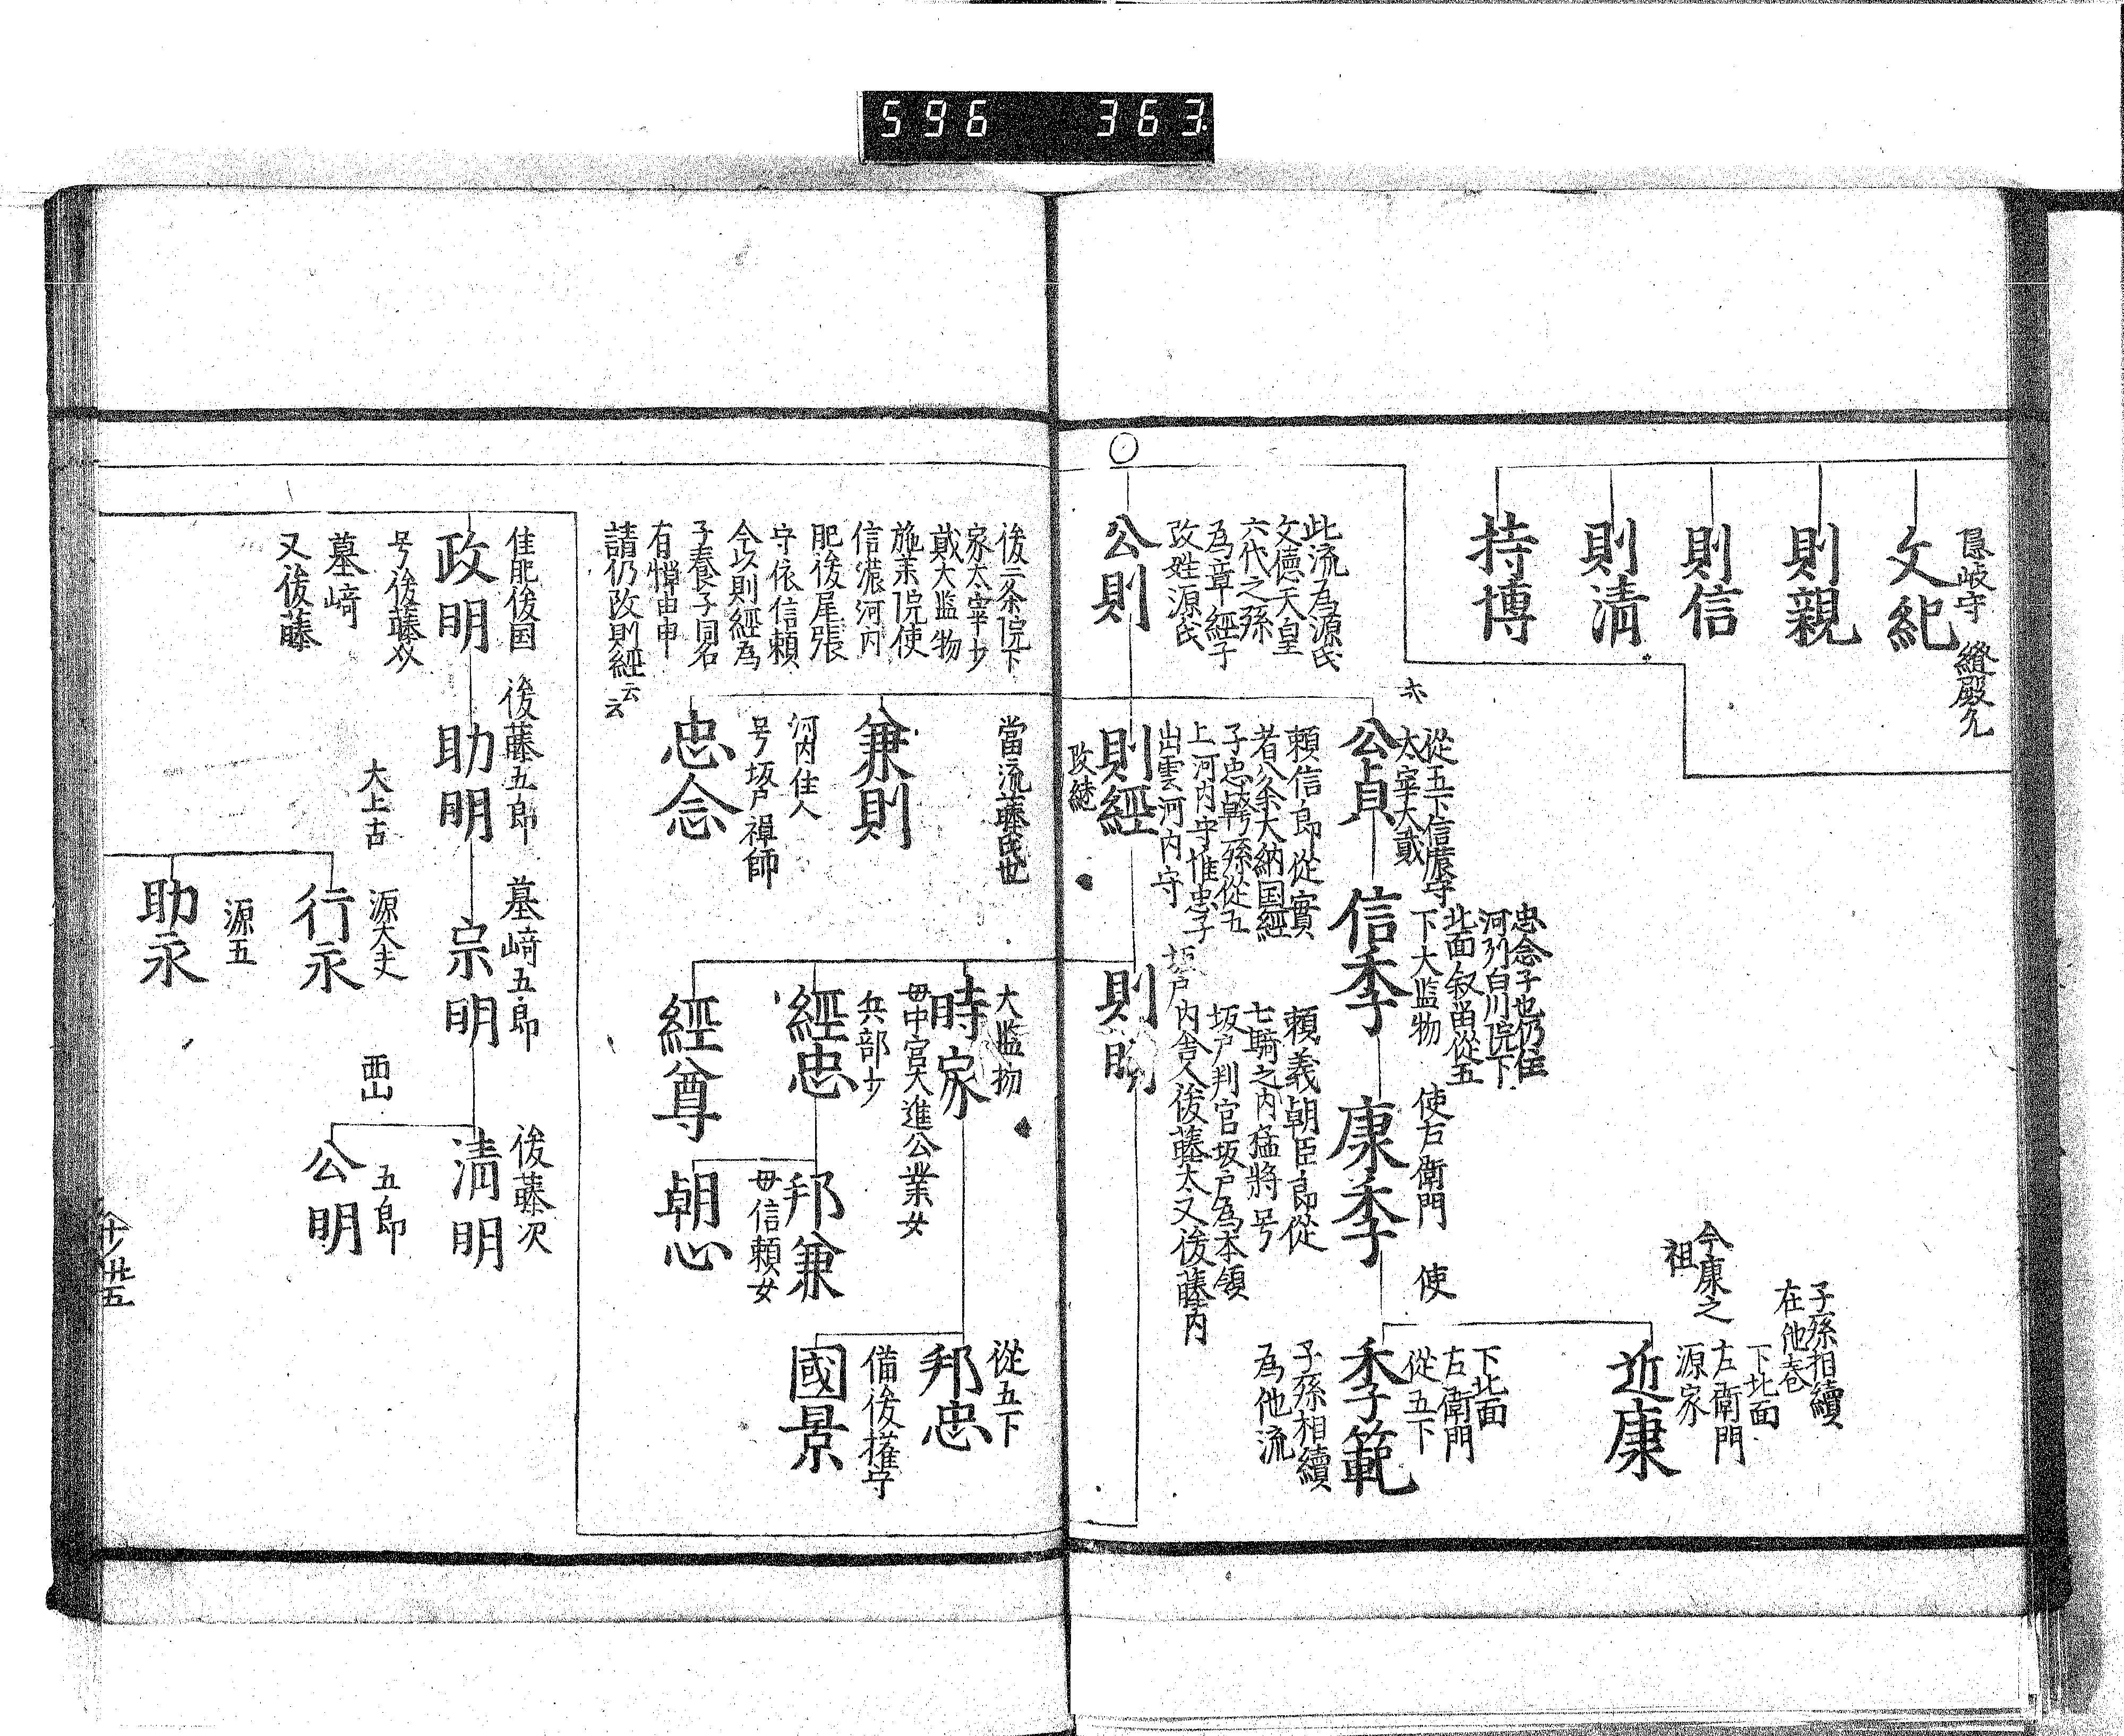 596 363
隠岐守 縫殿允
文紀
則親
則信
則清
持博
子孫相續
在他巻
下北面
左衛門
源家
今康之
祖
近康
忠念子也仍住
河列白川院下
北面叙留従五
下大監物
從五下信濃守
太宰大貳
公貞
信季
使右衛門
康季
使
下北面
右衛門
従五下
季範
子孫相續
為他流
此流為源氏
文徳天皇
六代之孫
為章經子
改姓源氏
公則
頼信郎從實
者八条大納国經
子忠幹孫從五
上河内守惟忠子
出雲河内守
則經
改継
頼義朝臣郎從
七騎之内猛將号
坂戸判官坂戸為本領
坂戸内舎人後藤太又後藤内
則明
後三条院下
家太宰少
貳大監物
施薬院使
信濃河内
肥後尾張
守依信頼
今以則經為
子養子同名
有憚由申
請仍改則經云云
當流藤氏也
兼則
河内住人
号坂戸禪師
忠念
大監物
時家
母中宮大進公業女
兵部少
經忠
經尊
邦兼
母信頼女
朝忠
從五下
邦忠
備後權守
國景
住肥後国
政明
号後藤次
墓﨑
又後藤
後藤五郎
助明
墓﨑五郎
宗明
後藤次
清明
西山
五郎
公明
大上古
源大夫
行永
源五
助永
廿五